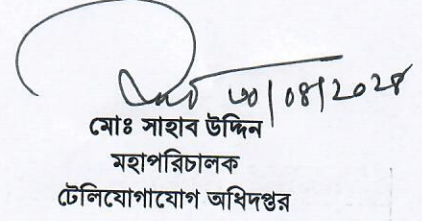 ৩০/০৪/২০২৪
মোঃ সাহাব উদ্দিন
মহাপরিচালক
টেলিযোগাযোগ অধিদপ্তর